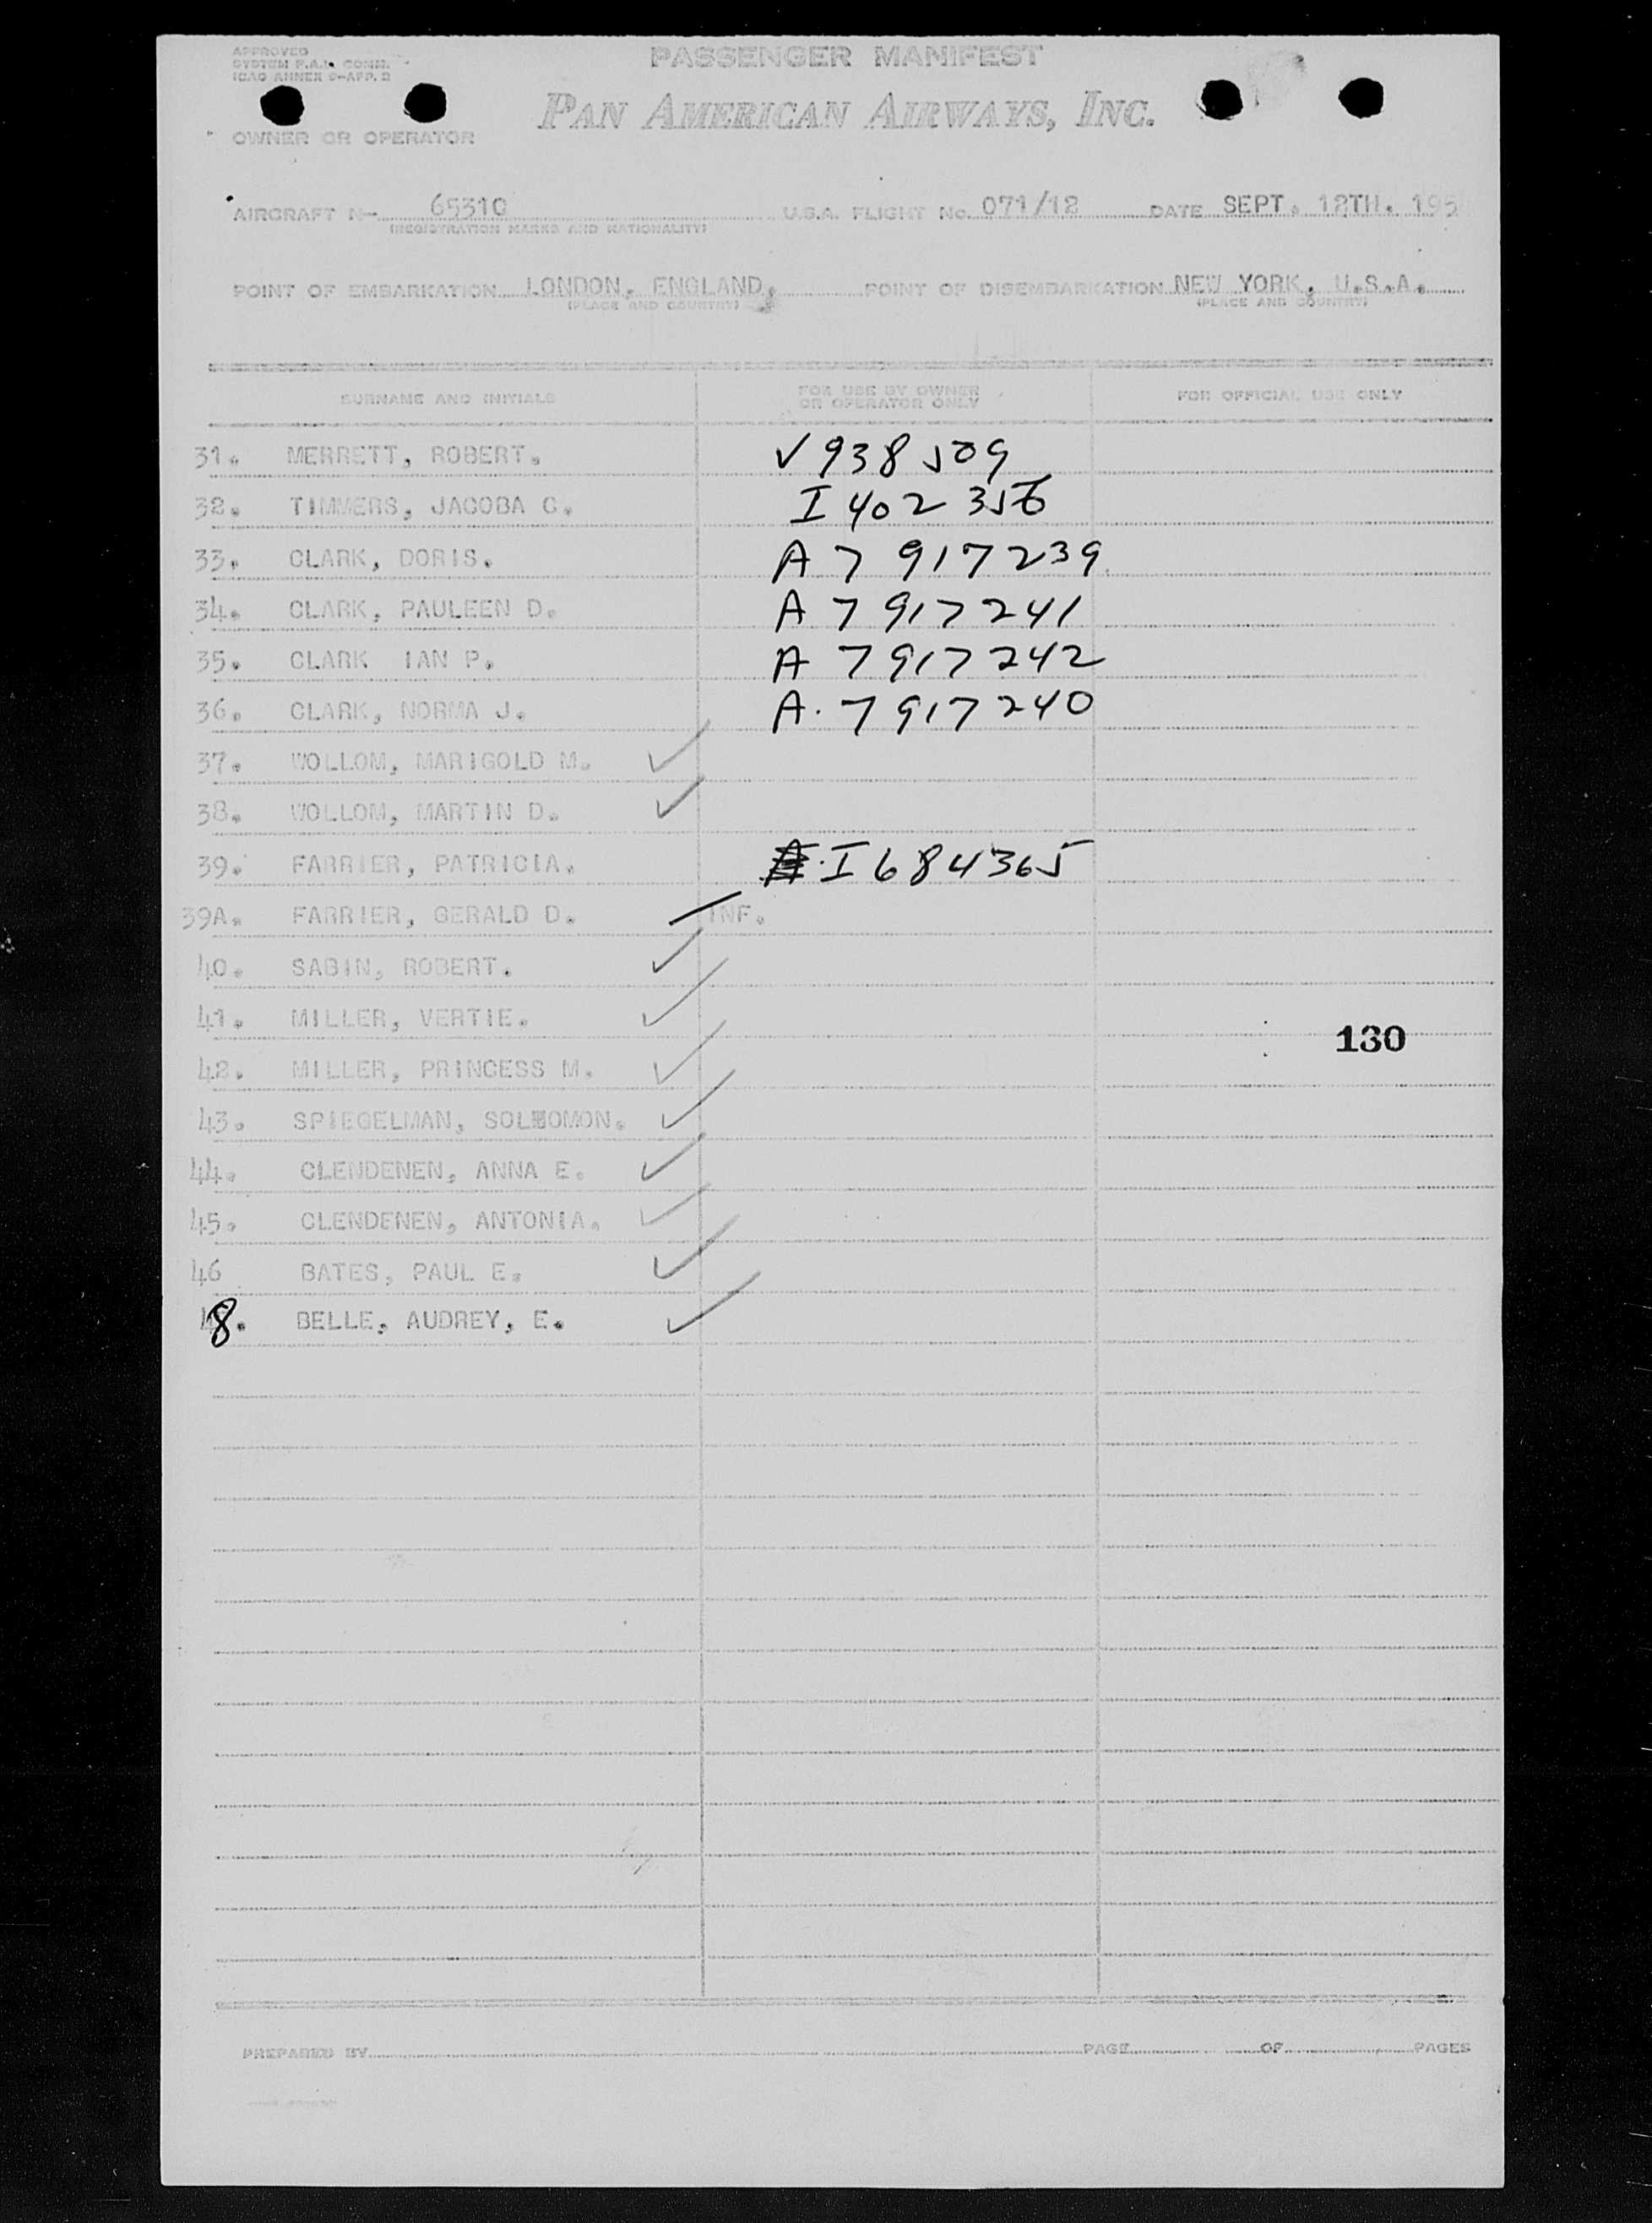 APPROVED
SYSTEM F.A.L. COMM.
ICAO ANNEX 9-APP. 2
PASSENGER MANIFEST
PAN AMERICAN AIRWAYS, INC.
OWNER OR OPERATOR
AIRCRAFT N- 65310 U.S.A. FLIGHT No. 071/12 DATE SEPT. 12TH. 195
(REGISTRATION MARKS AND NATIONALITY)
POINT OF EMBARKATION LONDON, ENGLAND, POINT OF DISEMBARKATION NEW YORK, U.S.A.
(PLACE AND COUNTRY) (PLACE AND COUNTRY)
SURNAME AND INITIALS FOR USE BY OWNER OR OPERATOR ONLY FOR OFFICIAL USE ONLY
31. MERRETT, ROBERT. V 938509
32. TIMMERS, JACOBA C. I 402 356
33. CLARK, DORIS. A 7 917239
34. CLARK, PAULEEN D. A 7 917241
35. CLARK IAN P. A 7917242
36. CLARK, NORMA J. A. 7917240
37. WOLLOM, MARIGOLD M. ✓
38. WOLLOM, MARTIN D. ✓
39. FARRIER, PATRICIA. I 684365
39A. FARRIER, GERALD D. INF.
40. SABIN, ROBERT. ✓
41. MILLER, VERTIE. ✓
130
42. MILLER, PRINCESS M. ✓
43. SPIEGELMAN, SOLOMON. ✓
44. CLENDENEN, ANNA E. ✓
45. CLENDENEN, ANTONIA. ✓
46 BATES, PAUL E. ✓
48. BELLE, AUDREY, E. ✓
PREPARED BY PAGE OF PAGES